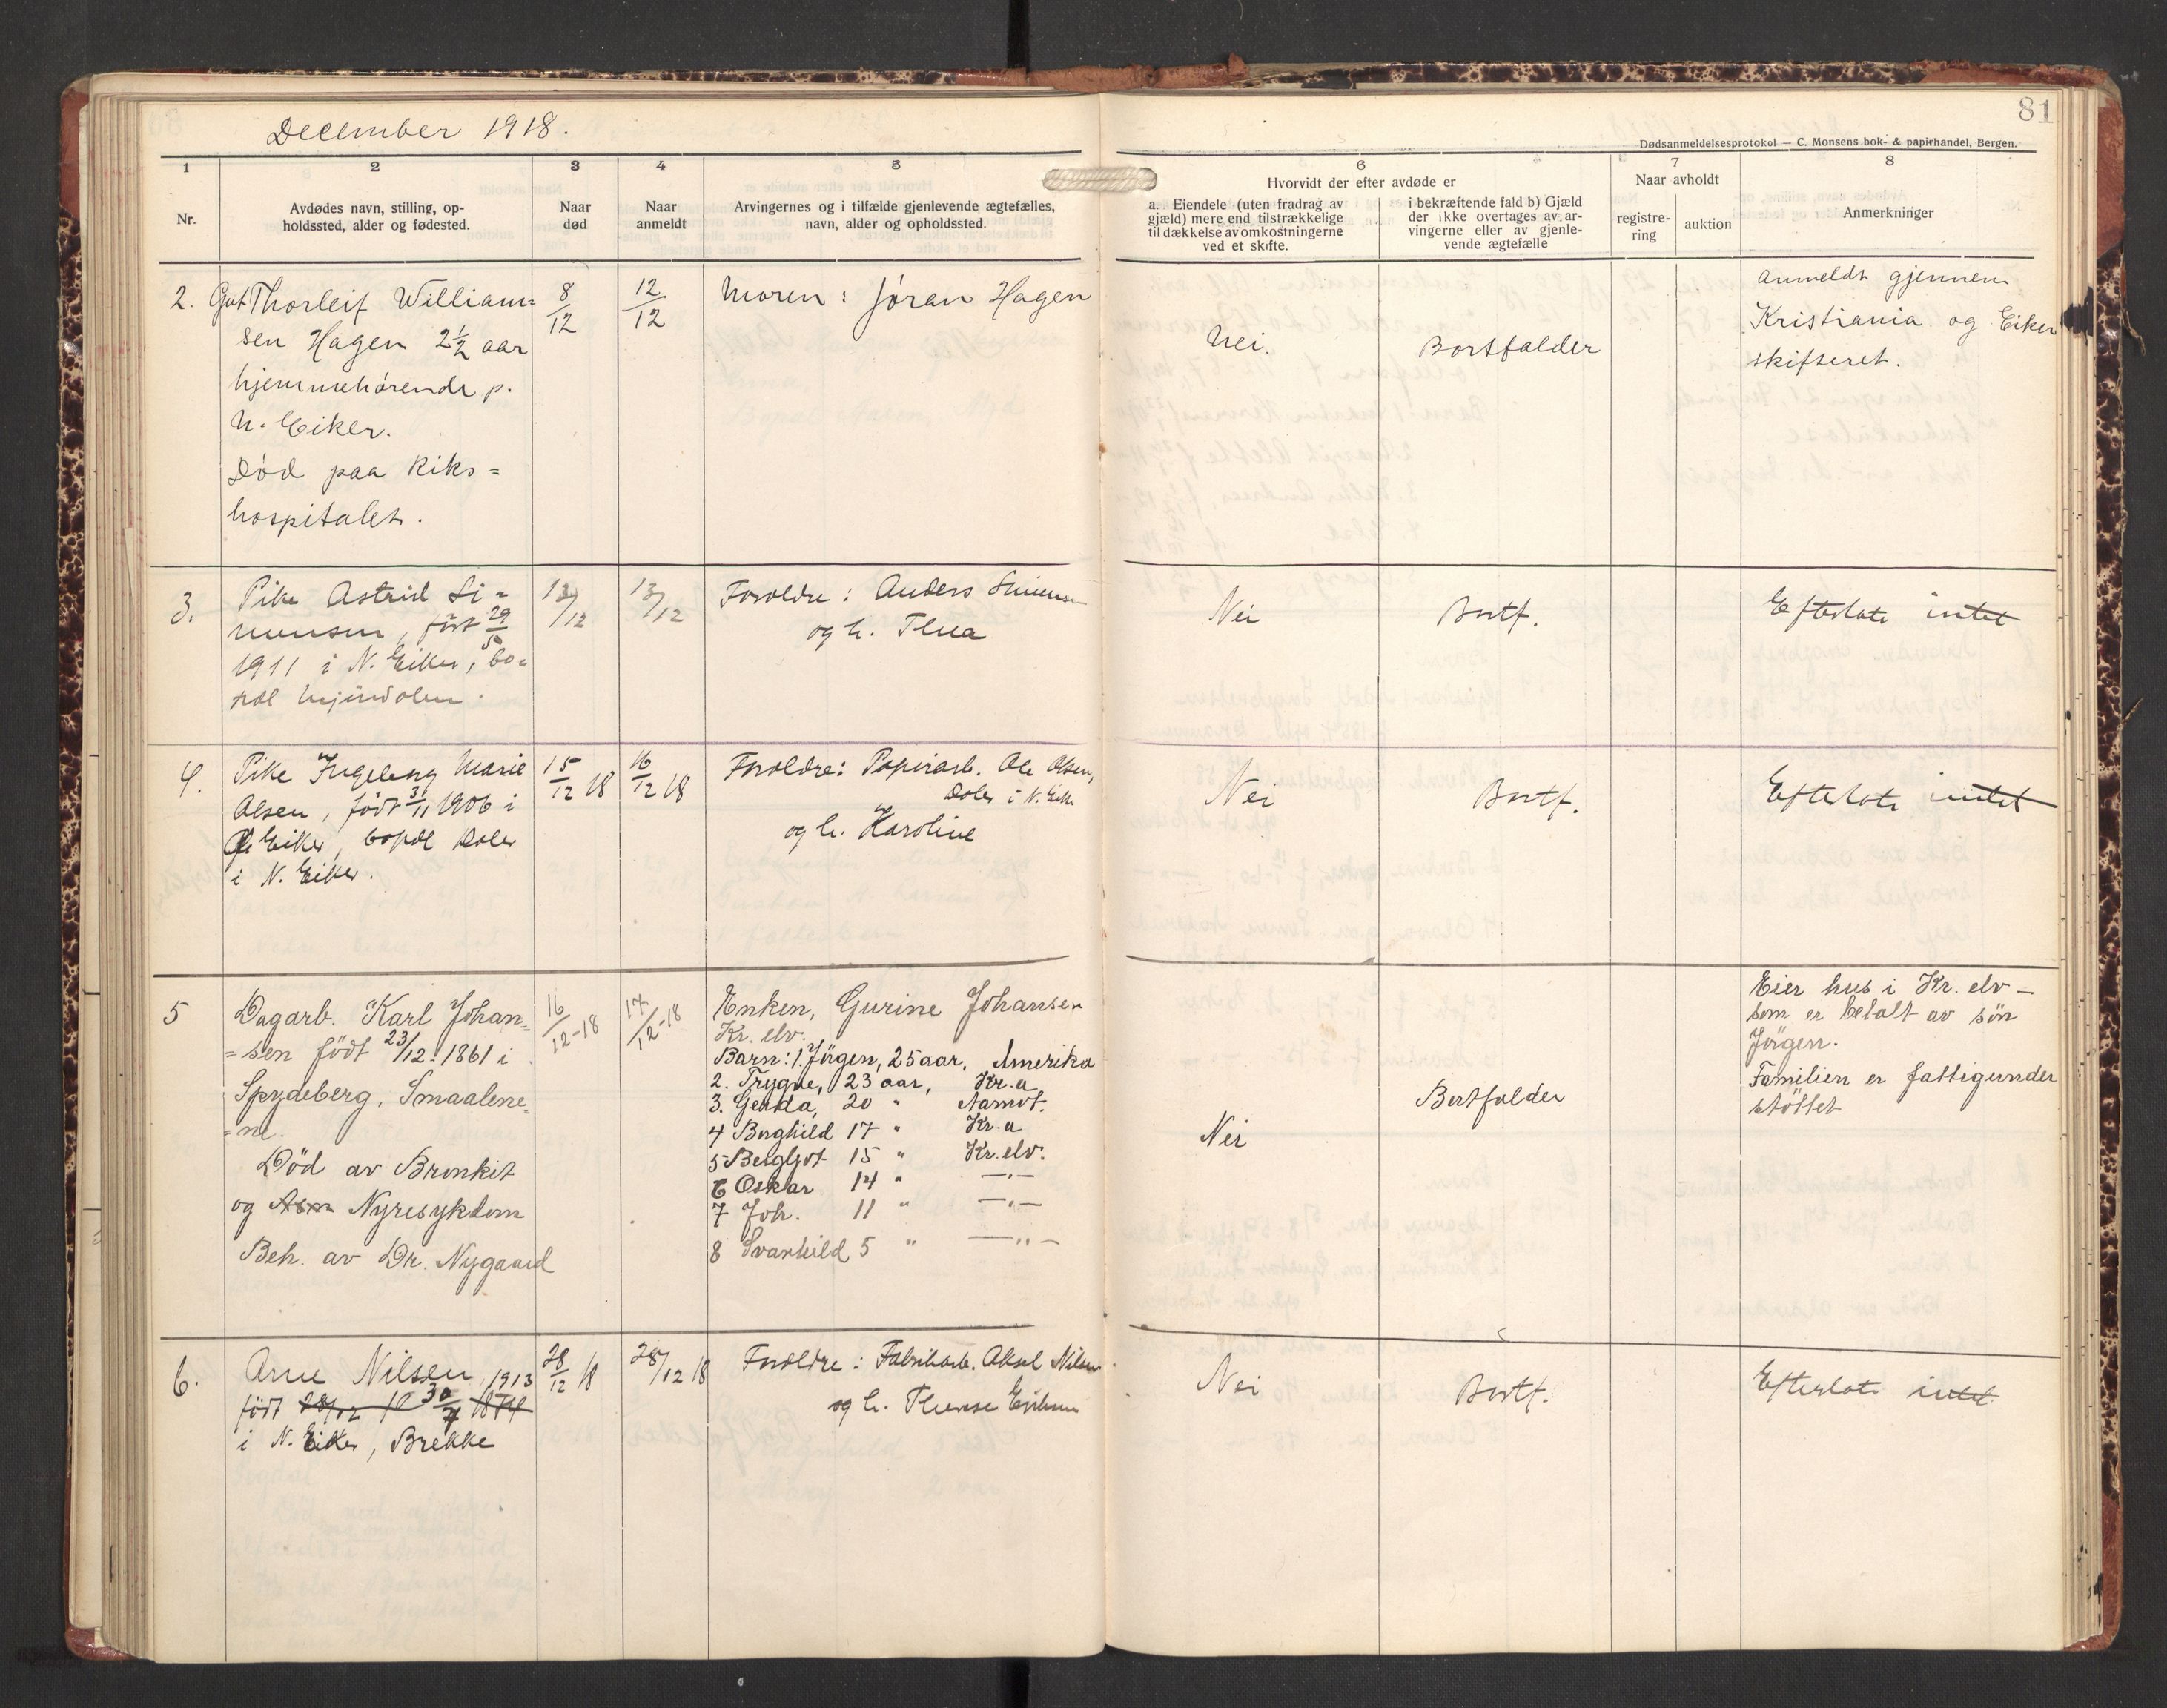 December 1918.
81
Dødsanmeldelsesprotokol — C. Monsens bok- & papirhandel, Bergen.
1
2
3
4
5
6
7
8
Nr.
Avdødes navn, stilling, op-
holdssted, alder og fødested.
Naar
død
Naar
anmeldt
Arvingernes og i tilfælde gjenlevende ægtefælles,
navn, alder og opholdssted.
Hvorvidt der efter avdøde er
a. Eiendele (uten fradrag av
gjæld) mere end tilstrækkelige
til dækkelse av omkostningerne
ved et skifte.
i bekræftende fald b) Gjæld
der ikke overtages av ar-
vingerne eller av gjenle-
vende ægtefælle
Naar avholdt
registre-
ring
auktion
Anmerkninger
2.
Gut Thorleif William=
sen Hagen 2½ aar
hjemmehørende p.
N. Eiker.
Død paa Riks=
hospitalet.
8/12
12/12
Moren: Jøran Hagen
Nei.
Bortfalder
Anmeldt gjennem
Kristiania og Eiker
skifteret.
3.
Pike Astrid Si=
monsen, født 29/5
1911 i N. Eiker, bo=
pæl Mjøndalen.
/12
13/12
Foreldre: Anders Simonsen
og h. Thea
Nei
Bortf.
Efterlate intet
4.
Pike Ingeborg Marie
Olsen, født 3/11 1906 i
Ø. Eiker, bopæl Doler
i N. Eiker.
15/12 18
16/12 18
Foreldre: Papirarb. Ole Olsen,
Doler i N. Eik.
og h. Karoline
Nei
Bortf.
Efterlate intet
5
Dagarb. Karl Johan=
=sen født 23/12. 1861 i
Spydeberg, Smaalene=
=ne.
Død av Bronkit
og Asm Nyresykdom
Beh. av Dr. Nygaard
16/12-18
17/12-18
Enken, Gurine Johansen
Kr. elv.
Barn: 1. Jörgen, 25 aar, Amerika
2. Trygve, 23 aar, Kr.a
3. Gerda, 20 " Aamot.
4 Borghild 17 " Kr.a
5 Bergljot 15 " Kr. elv.
6 Oskar 14 " —"—
7 Joh. 11 " —"—
8 Svanhild 5 " —"—
Nei
Bortfalder
Eier hus i Kr. elv —
som er betalt av sön
Jörgen.
Familien er fattigunder
stöttet
6.
Arne Nilsen, 1913
født 30/7
i N. Eiker, Brekke
28/12 18
28/12 18
Foreldre: Fabrikarb. Aksel Nilsen
og h. Therese Eriksen
Nei
Bortf.
Efterlate intet